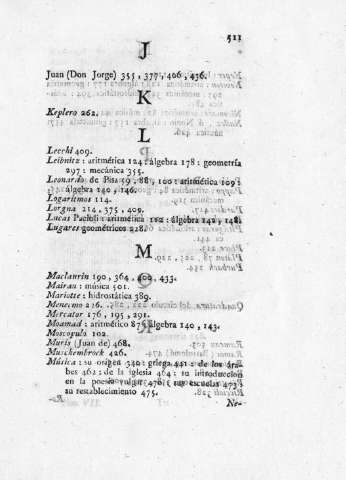 511
J
Juan (Don Jorge) 355, 377, 406, 436.
K
Keplero 262.
L
Lecchi 409.
Leibnitz: aritmética 124: álgebra 178: geometría
297: mecánica 355.
Leonardo de Pisa 59, 88, 100: aritmética 109:
álgebra 140, 146.
Logaritmos 114.
Lorgna 214, 375, 409.
Lucas Pacioli: aritmética 112: álgebra 142, 148.
Lugares geométricos 228.
M
Maclaurin 190, 364, 400, 433.
Mairau: música 501.
Mariotte: hidrostática 389.
Menecmo 226.
Mercator 176, 195, 291.
Moamad: aritmético 87: álgebra 140, 143.
Moscopulo 102.
Muris (Juan de) 468.
Muschembrock 426.
Música: su orígen 340: griega 441: de los ára-
bes 462: de la iglesia 464: su introduccion
en la poesía vulgar 470: sus escuelas 473:
su restablecimiento 475.
Ne-